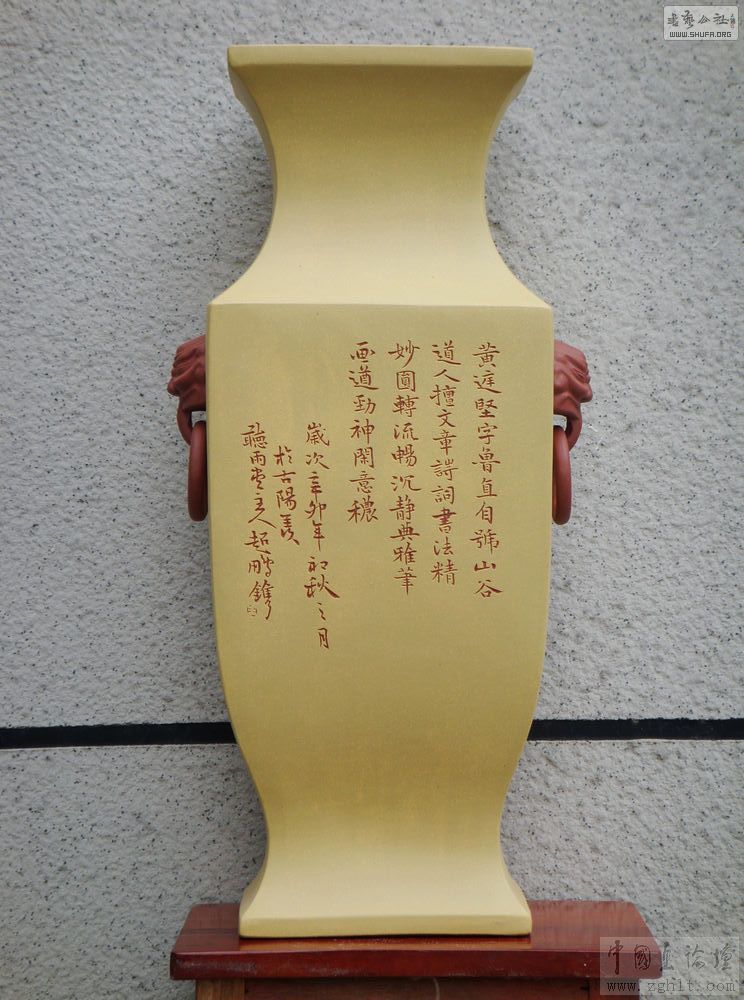 黄庭堅字魯直自號山谷
道人擅文章詩詞書法精
妙圓轉流暢沉静典雅筆
画遒勁神閑意穠
歲次辛卯年初秋之月
於古陽羨
聽雨堂主人超鵬鐫
書藝公社
WWW.SHUFA.ORG
中國畫論壇
www.zghlt.com